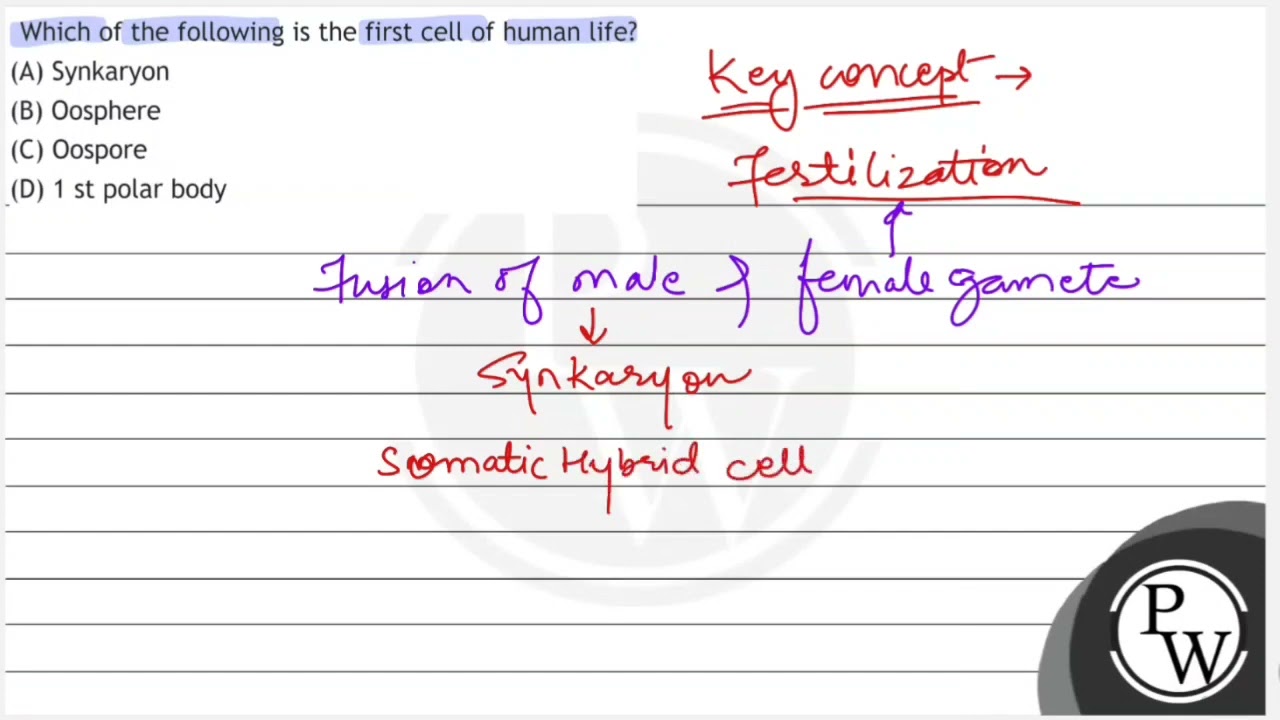 Which of the following is the first cell of human life?
(A) Synkaryon
(B) Oosphere
(C) Oospore
(D) 1 st polar body
Key concept →
Fertilization
Fusion of male & female gamete
↓
Synkaryon
Somatic Hybrid cell
PW